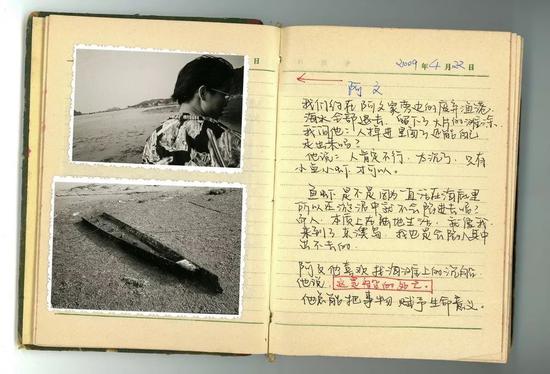 日
日
2009年4月22日
阿文
我们约在阿文家旁边的废弃渔港.
海水全部退去. 留下了大片的滩涂
我问他: 人掉进里面了还能自己
走出来吗?
他说: 人肯定不行. 太沉了. 只有
小鱼小虾才可以.
鱼虾是不是因为一直活在海底里
所以在淤泥中就不会陷进去呢?
而人. 本质上在陆地生活.
来到了 我也是会陷入其中
出不去的.
阿文他喜欢找海滩上的沉船
他说 这是 的
他总能把事物赋予生命意义.